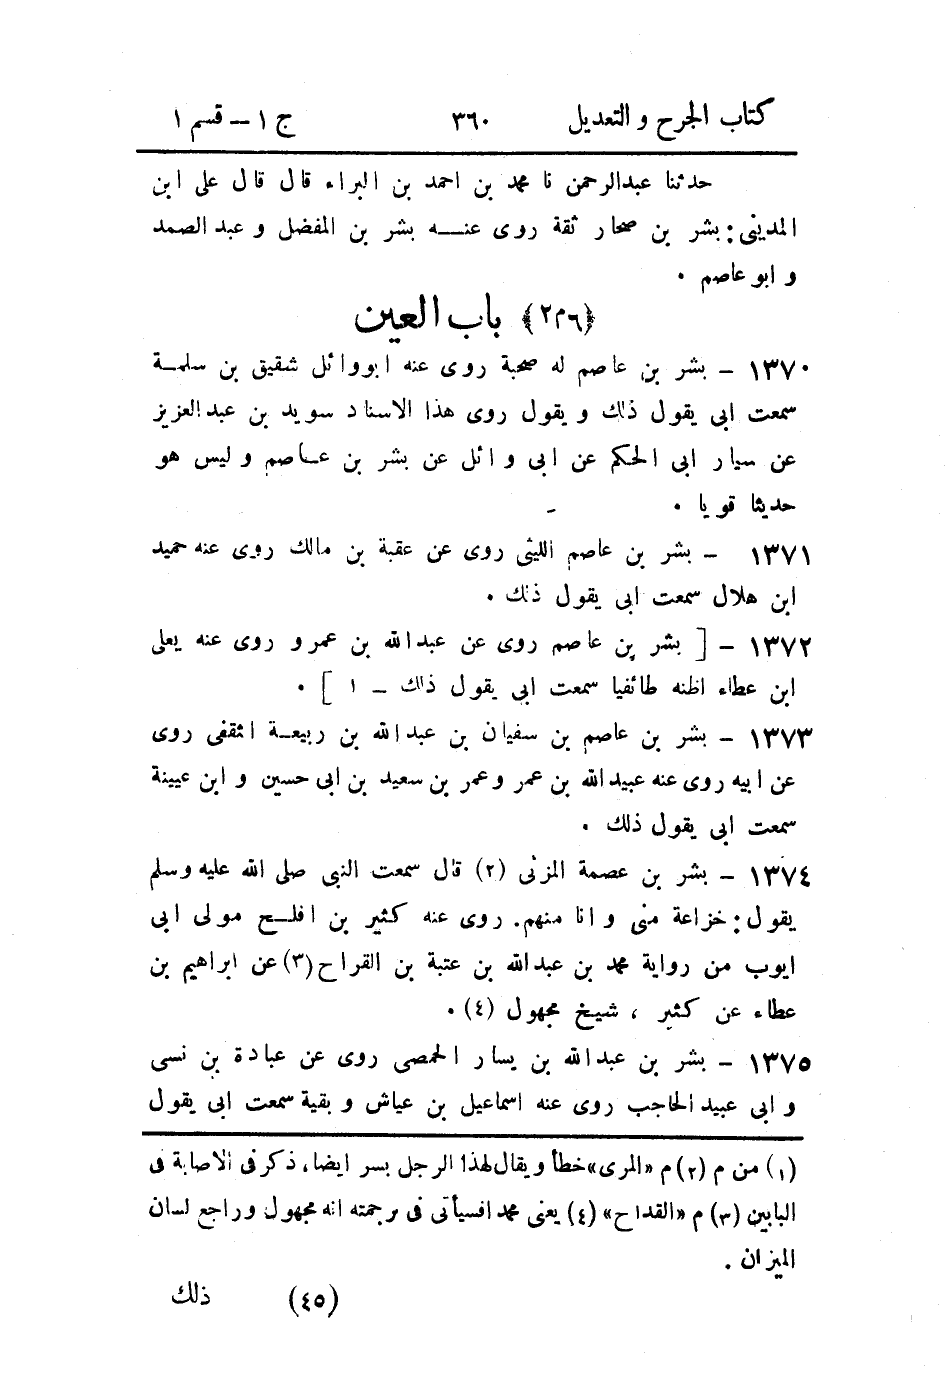 كتاب الجرح و التعديل ٣٦٠ ج ١ – قسم ١
حدثنا عبدالرحمن نا محمد بن احمد بن البراء قال قال على ابن
المدينى: بشر بن صحار ثقة روى عنه بشر بن المفضل و عبد الصمد
و ابو عاصم .
﴿٦م٢﴾ باب العين
١٣٧٠ – بشر بن عاصم له صحبة روى عنه ابو وائل شقيق بن سلمة
سمعت ابى يقول ذلك و يقول روى هذا الاسناد سويد بن عبد العزيز
عن سيار ابى الحكم عن ابى وائل عن بشر بن عاصم و ليس هو
حديثا قويا .
١٣٧١ – بشر بن عاصم الليثى روى عن عقبة بن مالك روى عنه حميد
ابن هلال سمعت ابى يقول ذلك .
١٣٧٢ – [ بشر بن عاصم روى عن عبد الله بن عمرو روى عنه يعلى
ابن عطاء اظنه طائفيا سمعت ابى يقول ذلك – ١ ] .
١٣٧٣ – بشر بن عاصم بن سفيان بن عبد الله بن ربيعة الثقفى روى
عن ابيه روى عنه عبيد الله بن عمر و عمر بن سعيد بن ابى حسين و ابن عيينة
سمعت ابى يقول ذلك .
١٣٧٤ – بشر بن عصمة المزنى (٢) قال سمعت النبى صلى الله عليه وسلم
يقول: خزاعة منى و انا منهم. روى عنه كثير بن افلح مولى ابى
ايوب من رواية محمد بن عبد الله بن عتبة بن القراح (٣) عن ابراهيم بن
عطاء عن كثير ، شيخ مجهول (٤) .
١٣٧٥ – بشر بن عبد الله بن يسار الحمصى روى عن عبادة بن نسى
و ابى عبيد الحاجب روى عنه اسماعيل بن عياش و بقية سمعت ابى يقول
(١) من م (٢) م «المرى» خطأ و يقال لهذا الرجل بسر ايضا، ذكر فى الاصابة فى
البابين (٣) م «القداح» (٤) يعنى محمد افسيأتى فى ترجمته انه مجهول و راجع لسان
الميزان .
(٤٥) ذلك